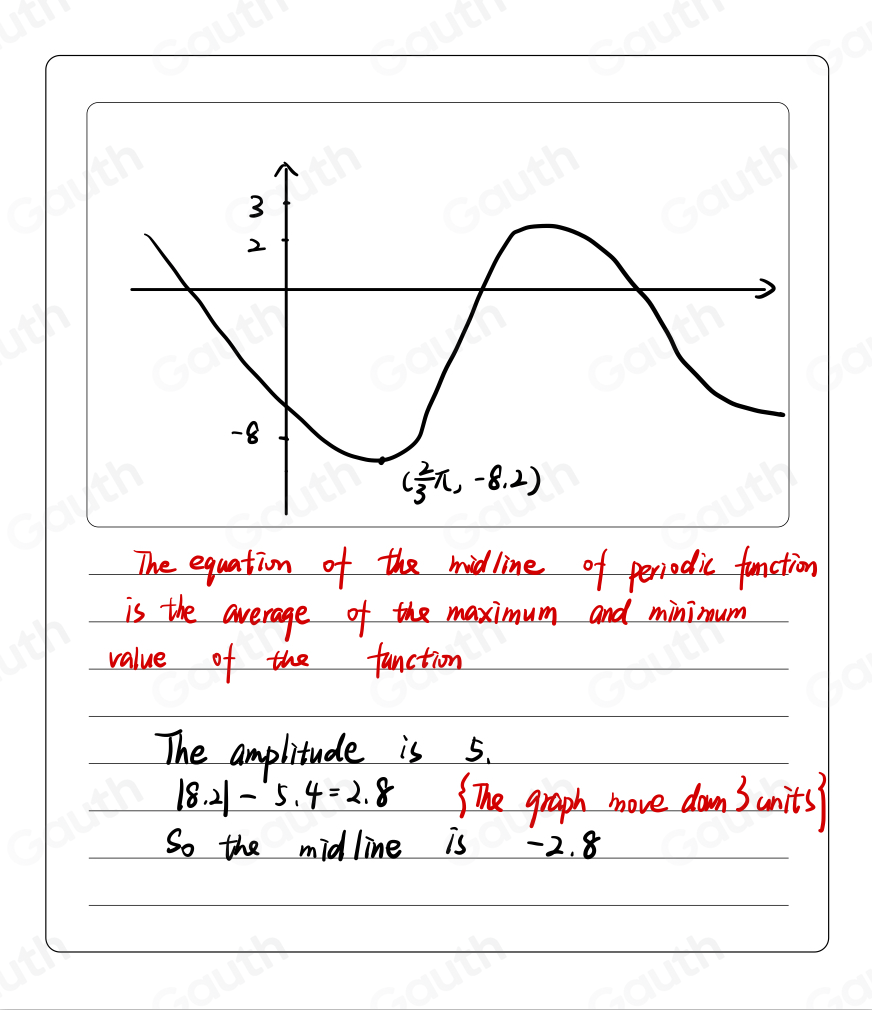 3
2
-8
(2/3 π, -8.2)
The equation of the midline of periodic function
is the average of the maximum and minimum
value of the function
The amplitude is 5.
|8.2| - 5.4 = 2.8 {The graph move down 3 units}
So the midline is -2.8
Gauth